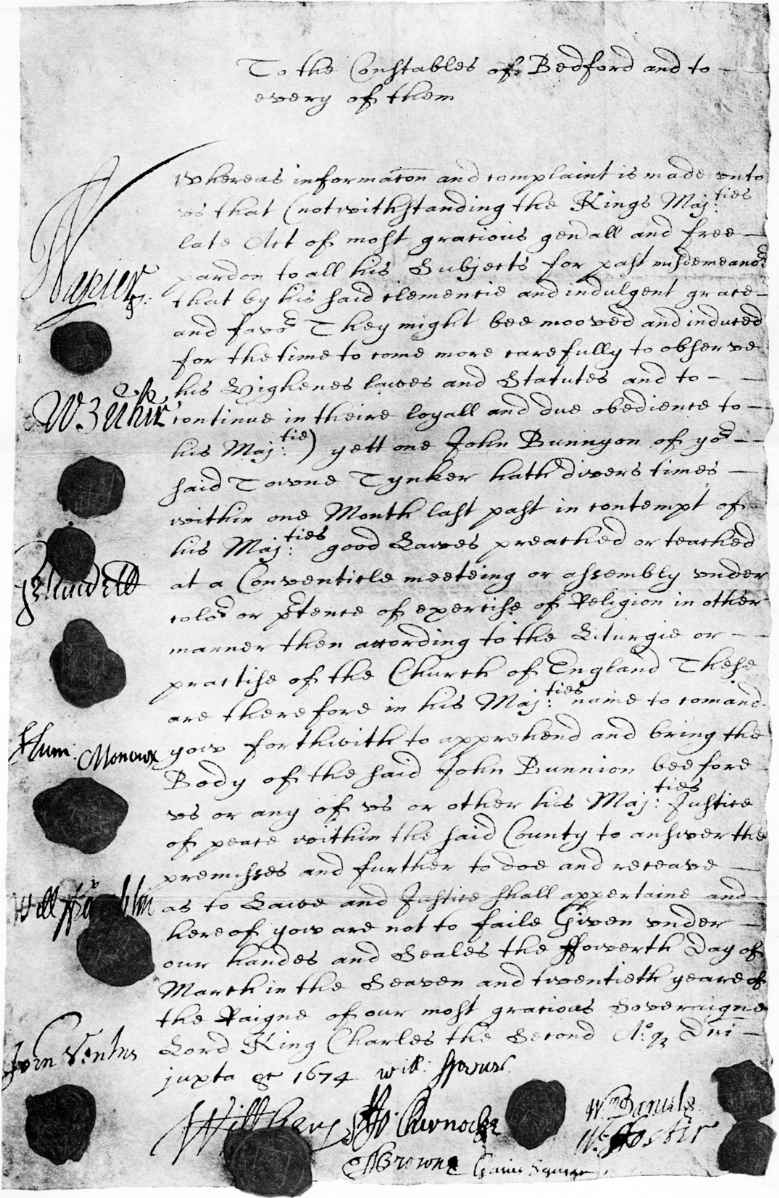 To the Constables of Bedford and to
every of them
Whereas informacon and complaint is made unto
us that (notwithstanding the Kings Maj:ties
late Act of most gracious gen'all and free
pardon to all his Subjects for past misdemeano'rs
that by his said clemencie and indulgent grace
and favo'r They might bee mooved and induced
for the time to come more carefully to observe
his Highenes lawes and Statutes and to
continue in theire loyall and due obedience to
his Maj:tie) yett one John Bunnyon of yo'r
said Towne Tynker hath divers times
within one Month last past in contempt of
his Maj:ties good Lawes preached or teached
at a Conventicle meeteing or assembly under
colo'r or p'tence of exercise of Religion in other
manner then according to the Liturgie or
practise of the Church of England These
are therefore in his Maj:ties name to comand
yow forthwith to apprehend and bring the
Body of the said John Bunnion beefore
us or any of us or other his Maj:ties Justice
of peace within the said County to answer the
premisses and further to doe and receave
as to Lawe and Justice shall appertaine and
hereof yow are not to faile Given under
our handes and Seales the ffowerth Day of
March in the Seaven and twentieth yeare of
the Raigne of our most gracious Soveraigne
Lord King Charles the Second Ao q Dni
juxta &c 1674 will: Spencer
Napier
W Beecher
G Blundell
Hum: Monoux
Will ffranklin
John Ventris
Will
St Jo: Chernocke
Wm Daniels
T Browne
W: ffoster
Gaius Squire